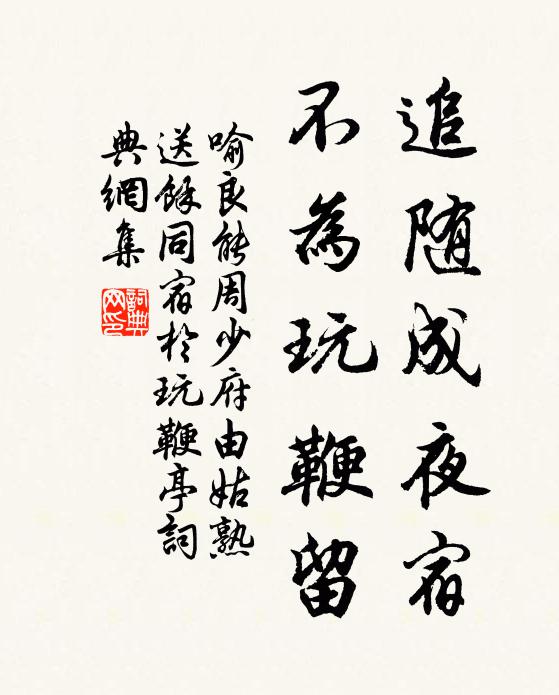 追随成夜宿
不為玩鞭留
喻良能周少府由姑熟
送餘同宿於玩鞭亭詞
典網集
詞典网印